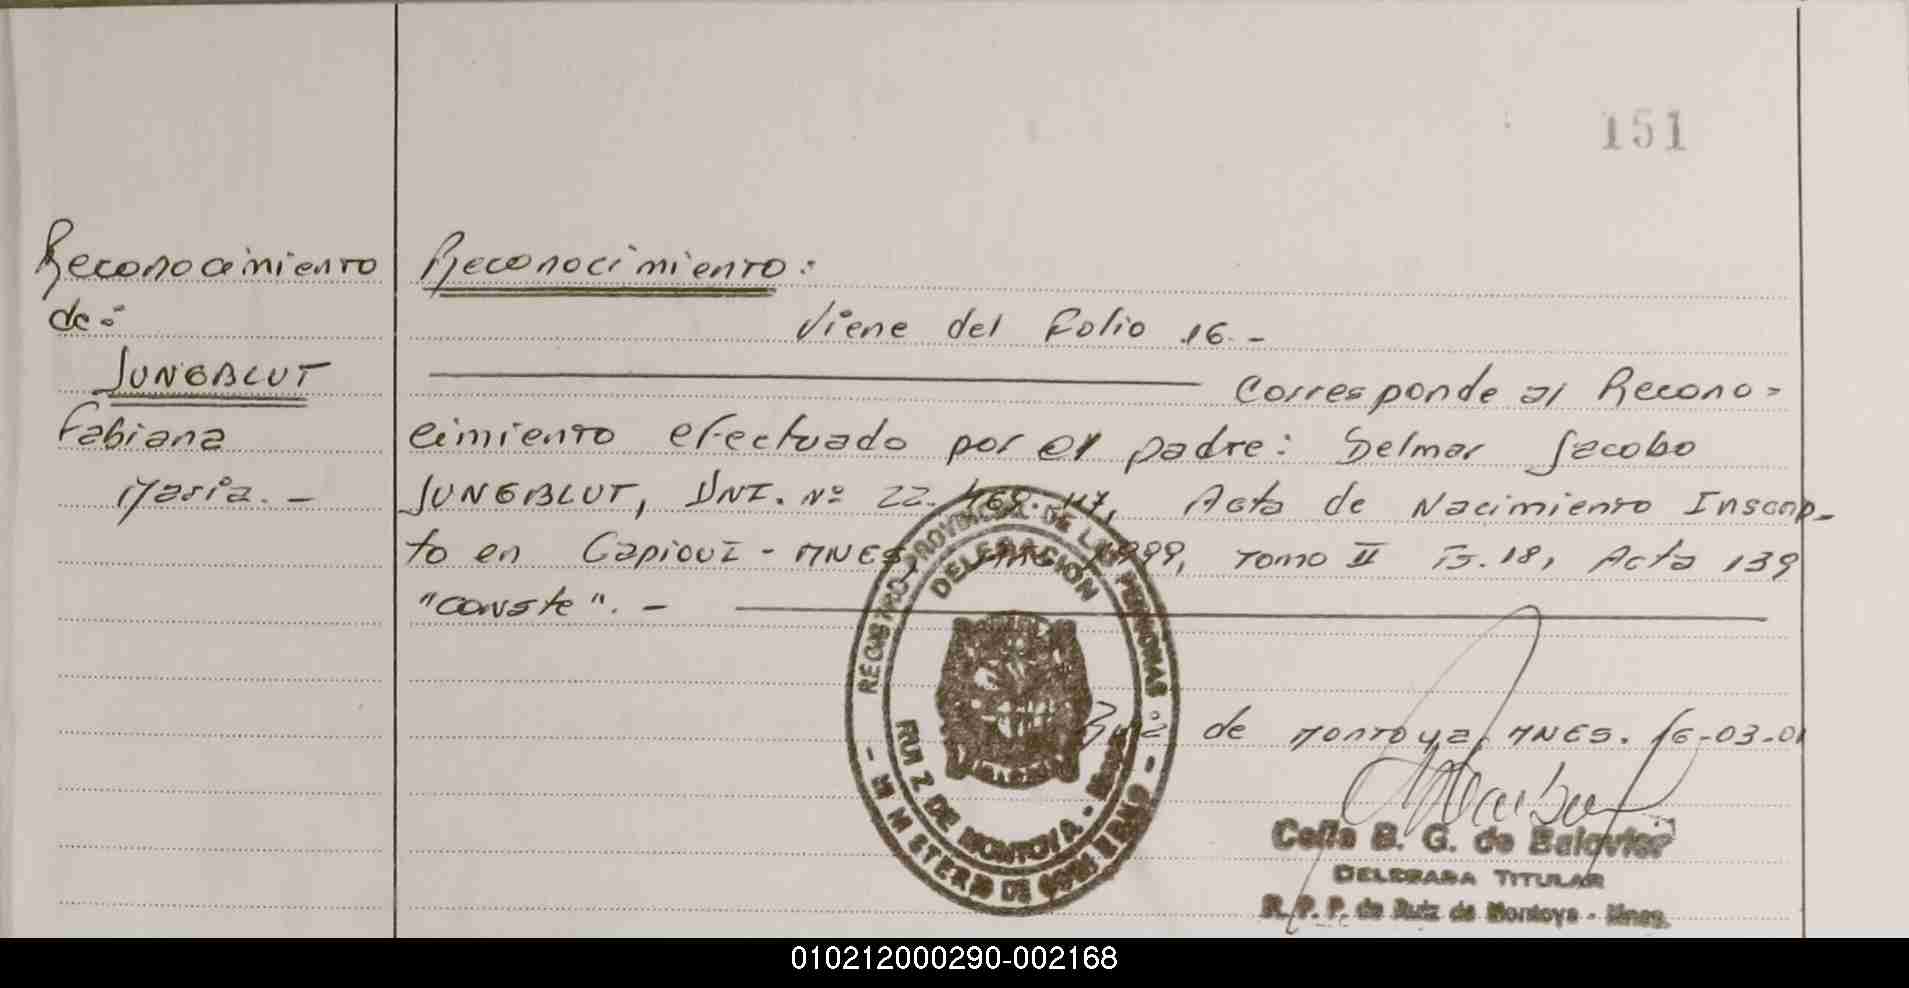 151
Reconocimiento
de:
JUNGBLUT
Fabiana
María. -
Reconocimiento:
Viene del Folio 16. -
Corresponde al Recono=
cimiento efectuado por el padre: Delmar Jacobo
JUNGBLUT, DNI. Nº 22. Acta de Nacimiento Inscrip-
to en Capioví - MNES, 1999, Tomo II Fs. 18, Acta 139
"CONSTE". -
Ruiz de Montoya, MNES. 16-03-01
REGISTRO PROVINCIAL DE LAS PERSONAS
DELEGACION
RUIZ DE MONTOYA - Mnes.
- MINISTERIO DE GOBIERNO -
Celia B. G. de
DELEGADA TITULAR
R. P. P. de Ruiz de Montoya - Mnes.
010212000290-002168